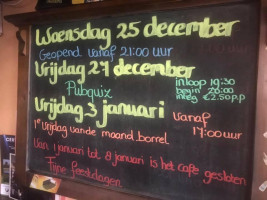 Woensdag 25 december
Geopend vanaf 21:00 uur
Vrijdag 27 december
Pubquiz
inloop 19:30
begin 20:00
inleg €2.50 p.p
Vrijdag 3 januari
vanaf
1e vrijdag van de maand borrel
17:00 uur
Van 1 januari tot 8 januari is het café gesloten
Fijne feestdagen